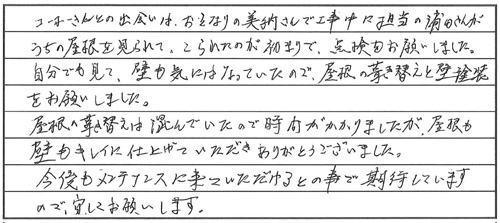 さんとの出会いは、おとなりの美納さんで工事中に担当の浦田さんが
うちの屋根を見られて、こられたのが初まりで、点検をお願いしました。
自分でも見て、壁も気にはなっていたので、屋根の葺き替えと壁塗装
をお願いしました。
屋根の葺き替えは混んでいたので時間がかかりましたが、屋根も
壁もキレイに仕上げていただきありがとうございました。
今後もメンテナンスに来ていただけるとの事で期待しています
ので、宜しくお願いします。